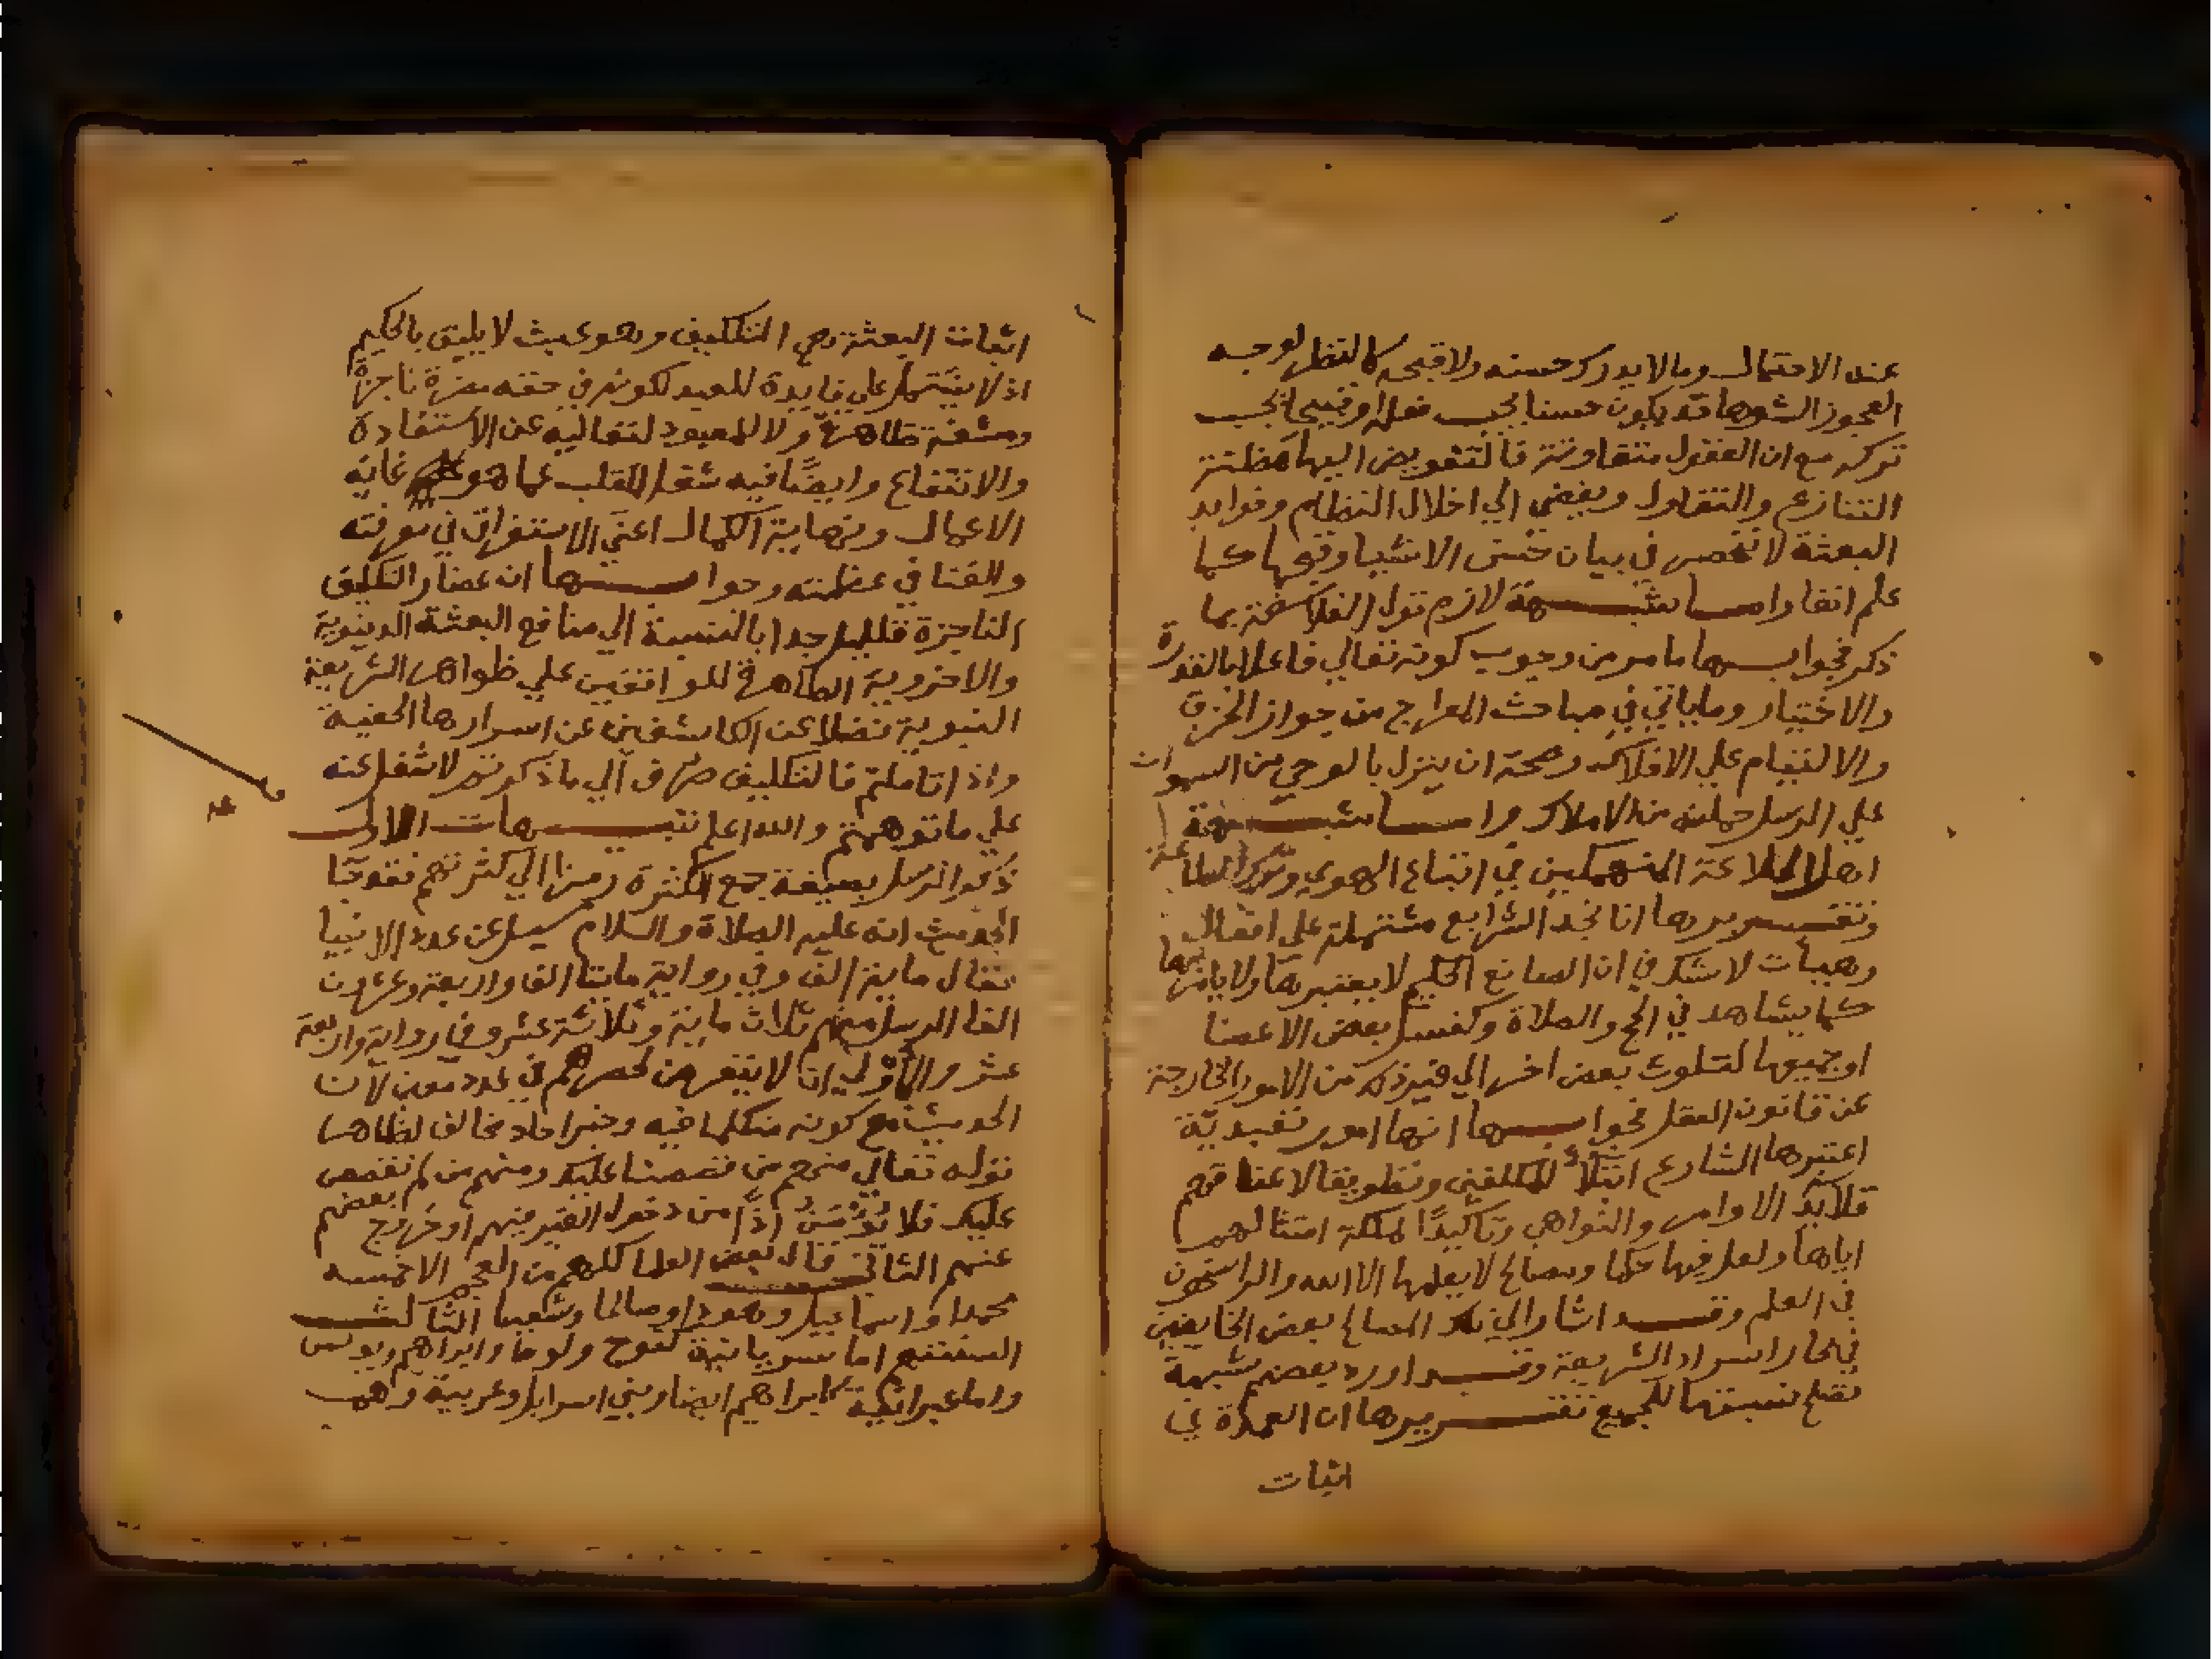 عند الاحتمال وما لا يدرك حسنه ولا قبحه كالنظر لوجه
العجوز الشوها قد يكون حسنا يجب فعله او قبيحا يجب
تركه مع ان العقول متفاوتة فالتفويض اليها مظنة
التنازع والتقاول ويفضي الي اخلال النظام وفوايد
البعثة لا تنحصر في بيان حسن الاشيا وقبحها كما
علم انفا واما شبهة لازم قول الفلاسفة بما
ذكر فجوابها ما مر من وجوب كونه تعالي فاعلا بالقدرة
والاختيار وما ياتي في مباحث المعراج من جواز الخرق
والالتيام علي الافلاك وصحة ان ينزل بالوحي من السموات
علي الرسل حملته من الاملاك واما شبهة
اهل الخلاعة المنهمكين في اتباع الهوي وترك الطاعة
وتقريرها انا نجد الشرايع مشتملة علي افعال
وهيبأت لا شك في ان الصانع الحكيم لا يعتبرها ولا يامر بها
كما يشاهد في الحج والصلاة وكغسل بعض الاعضا
او جميعها لتلوث بعض اخر الي غير ذلك من الامور الخارجة
عن قانون العقل فجوابها انها امور تعبدية
اعتبرها الشارع ابتلاء للمكلفين وتطويقا لاعناقهم
قلايد الاوامر والنواهي وتاكيدًا لملكة امتثالهم
اياها ولعل فيها حكما ومصالح لا يعلمها الا الله والراسخون
في العلم وقد اشار الي تلك المصالح بعض الخايضين
في بحار اسرار الشريعة وقد اورد بعضهم شبهة
تصلح نسبتها للجميع تقريرها ان العمدة في
اثبات
اثبات البعثة هي التكليف وهو عبث لا يليق بالحكيم
اذ لا يشتمل علي فايدة للعبد لكونه في حقه مضرة ناجزة
ومشقة ظاهرة ولا للمعبود لتعاليه عن الاستفادة
والانتفاع وايضًا فيه شغل للقلب عما هو غاية
الاعمال ونهاية الكمال اعني الاستغراق في معرفته
والفنا في عظمته وجوابها ان مضار التكليف
الناجزة قليل جدا بالنسبة الي منافع البعثة الدنيوية
والاخروية الظاهرة للواقفين علي ظواهر الشريعة
النبوية فضلا عن الكاشفين عن اسرارها الخفية
واذا تاملتم فالتكليف صرف الي ما ذكرتم لا شغل عنه
علي ما توهمتم والله اعلم تنبيهات الاول
ذكر الرسل بصيغة جمع الكثرة رمزا الي كثرتهم فقد جا
الحديث انه عليه الصلاة والسلام سيل عن عدد الانبيا
فقال ماية الف وفي رواية مايتا الف واربعة وعشرون
الفا الرسل منهم ثلاث ماية وثلاثة عشر وفي رواية واربعة
عشر والأولي ان لا يتعرض لحصرهم في عدد معين لان
الحديث مع كونه متكلما فيه وخبر احاد مخالف لظاهر
قوله تعالي منهم من قصصنا عليك ومنهم من لم نقصص
عليك فلا يؤمن اذًا من دخول الغير فيهم او خروج بعضهم
عنهم الثاني قال بعض العلما كلهم من العجم الا خمسة
محمدا واسماعيل وهودا وصالحا وشعيبا الثالث
السنتهم اما سريانية كنوح ولوط وابراهيم ويونس
واما عبرانية كابراهيم ايضا وبني اسرايل وعربية وهم